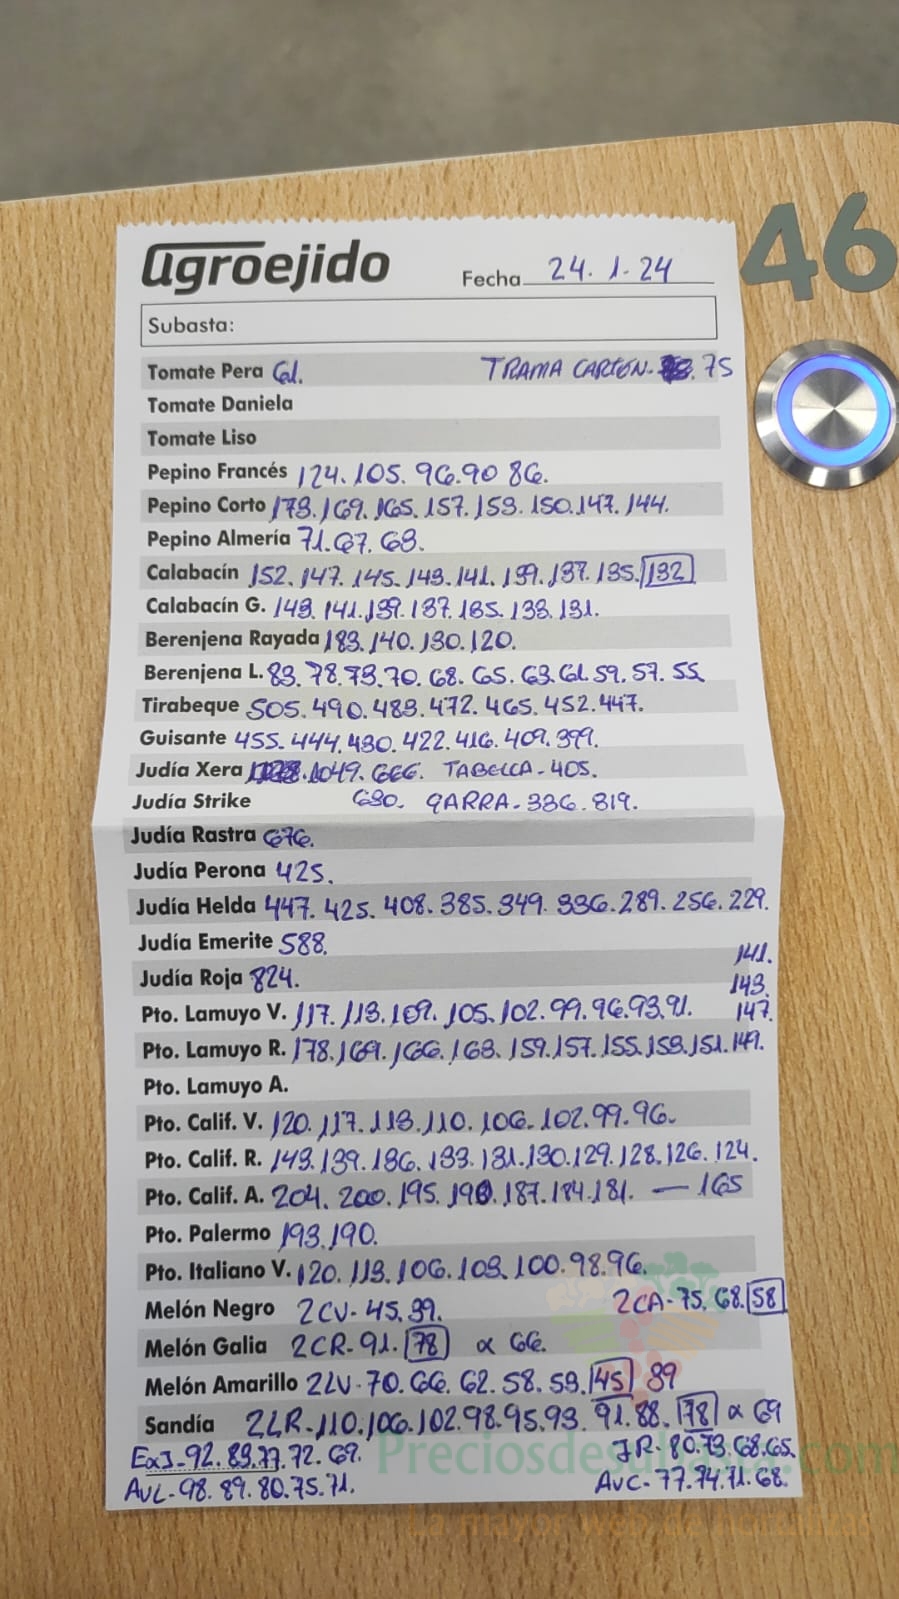 agroejido
Fecha 24.1.24
46
Subasta:
Tomate Pera 61. TRAMA CARTON- 75
Tomate Daniela
Tomate Liso
Pepino Francés 124.105.96.90 86.
Pepino Corto 173.169.165.157.153.150.147.144.
Pepino Almería 71.67.63.
Calabacín 152.147.145.143.141.139.137.135.132
Calabacín G. 143.141.139.137.135.133.131.
Berenjena Rayada 183.140.130.120.
Berenjena L. 83.78.73.70.68.65.63.61.59.57.55
Tirabeque 505.490.483.472.465.452.447.
Guisante 455.444.430.422.416.409.399.
Judía Xera 1049.666. TABELLA-405.
Judía Strike 630. GARRA-336.819.
Judía Rastra 676.
Judía Perona 425.
Judía Helda 447.425.408.385.349.336.289.256.229.
Judía Emerite 588.
141.
Judía Roja 824.
143.
Pto. Lamuyo V. 117.113.109.105.102.99.96.93.91.
147.
Pto. Lamuyo R. 178.169.166.163.159.157.155.153.151.149.
Pto. Lamuyo A.
Pto. Calif. V. 120.117.113.110.106.102.99.96.
Pto. Calif. R. 143.139.136.133.131.130.129.128.126.124.
Pto. Calif. A. 204.200.195.190.187.184.181. — 165
Pto. Palermo 193.190.
Pto. Italiano V. 120.113.106.103.100.98.96.
Melón Negro 2CV-45.39. 2CA-75.68.58
Melón Galia 2CR-91.78 α 66.
Melón Amarillo 2LV-70.66.62.58.53.45 39
Sandía 2LR-110.106.102.98.95.93.91.88.78 α 69
ExJ-92.83.77.72.69. JR-80.73.68.65.
AVL-98.89.80.75.71. AVC-77.74.71.68.
Preciosdesubasta.com
La mayor web de hortalizas